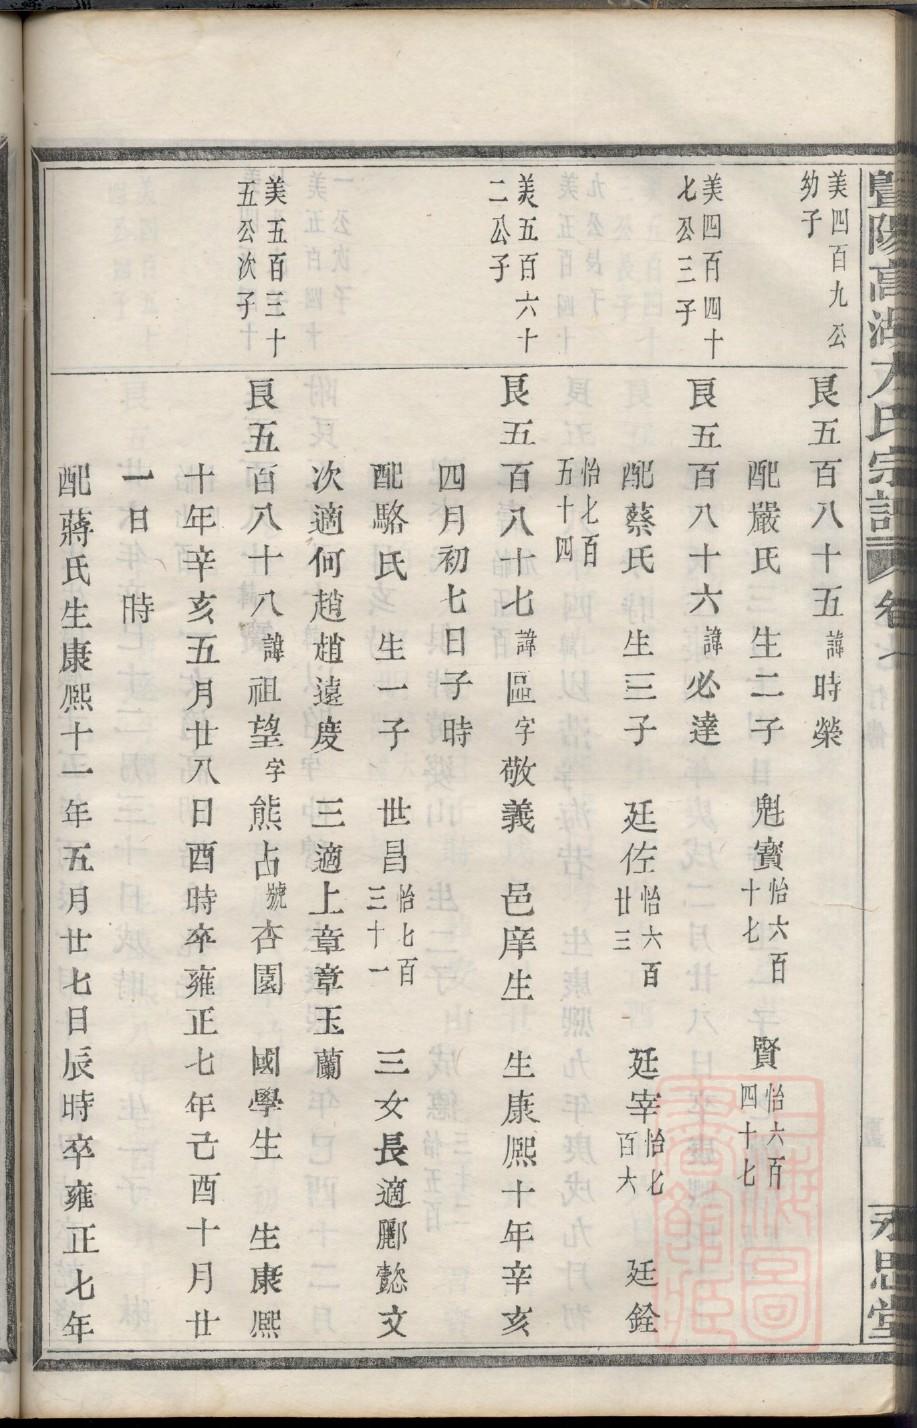 暨陽高湖方氏宗譜 卷七 行傳 永思堂
美四百九公
幼子
艮五百八十五諱時榮
配嚴氏 生二子 魁寳怡六百十七 賢怡六百四十七
美四百四十
七公三子
艮五百八十六諱必達
配蔡氏 生三子 廷佐怡六百廿三 廷宰怡七百六 廷銓
怡七百五十四
美五百六十
二公子
艮五百八十七諱區字敬義 邑庠生 生康熙十年辛亥
四月初七日子時
配駱氏 生一子 世昌怡七百三十一 三女長適酈懿文
次適何趙趙遠度 三適上章章玉蘭
美五百三十
五公次子
艮五百八十八諱祖望字熊占號杏園 國學生 生康熙
十年辛亥五月廿八日酉時卒雍正七年己酉十月廿
一日 時
配蔣氏生康熙十一年五月廿七日辰時卒雍正七年